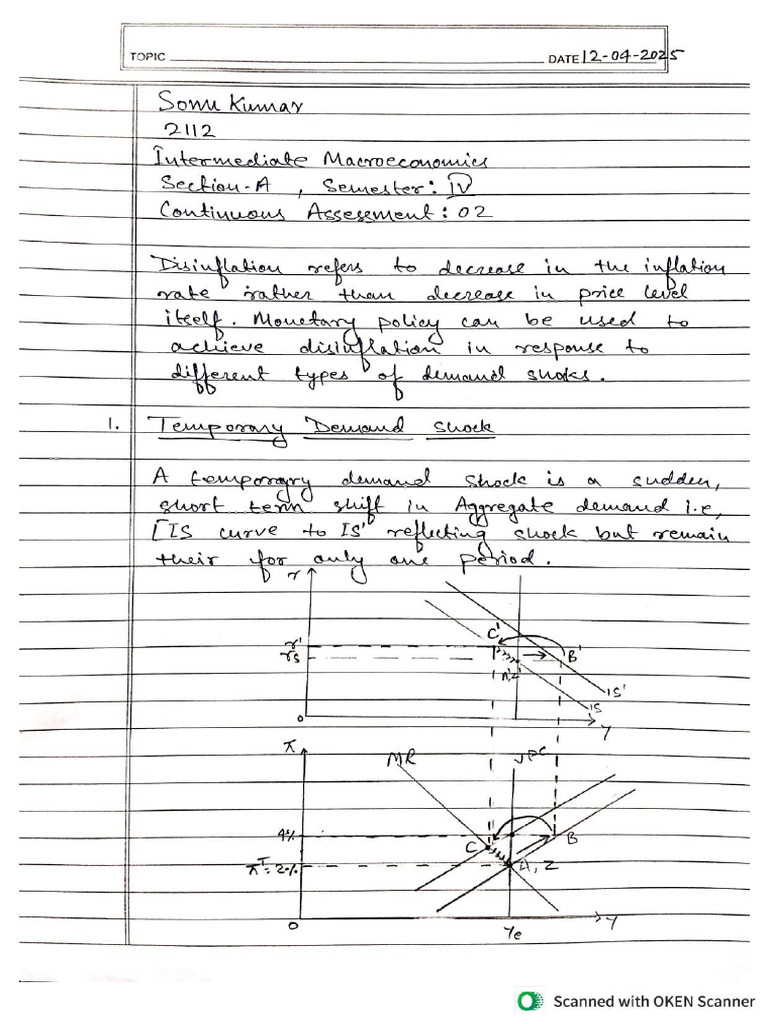 TOPIC
DATE 12-04-2025
Sonu Kumar
2112
Intermediate Macroeconomics
Section-A , Semester: IV
Continuous Assessment: 02
Disinflation refers to decrease in the inflation
rate rather than decrease in price level
itself. Monetary policy can be used to
achieve disinflation in response to
different types of demand shoks.
1. Temporary Demand shock
A temporary demand shock is a sudden,
short term shift in Aggregate demand i.e,
[IS curve to IS' reflecting shock but remain
their for only one period.
r
C'
r'
rs
B'
A',Z'
IS'
IS
0
y
π
MR
VPC
4%
C
B
πT = 2%
A, Z
0
ye
y
Scanned with OKEN Scanner